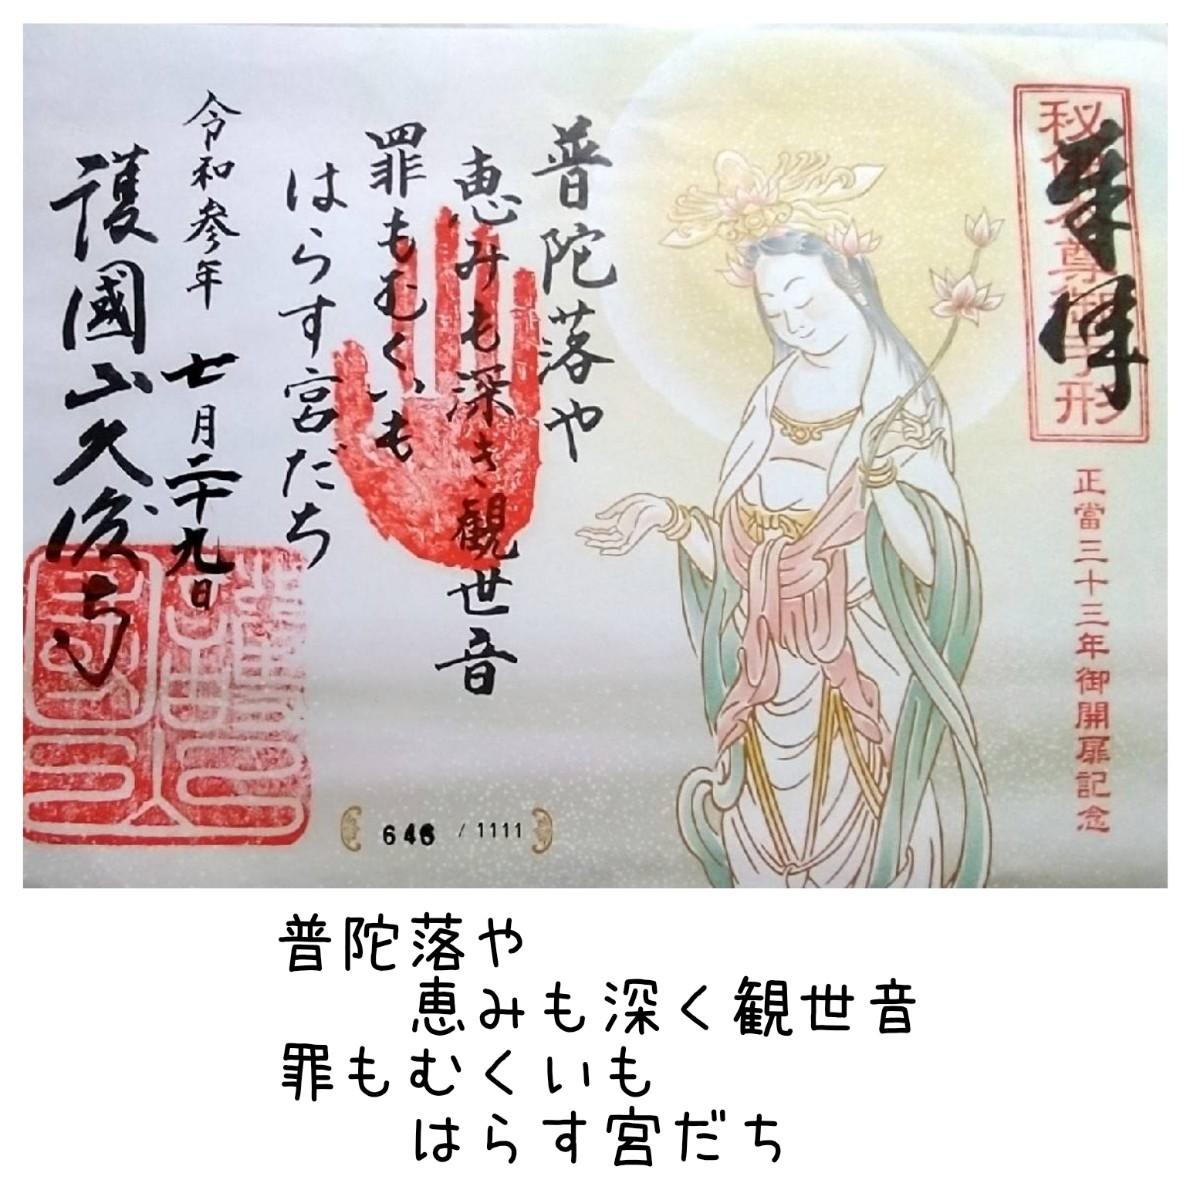 奉拝
秘佛本尊御手形
正當三十三年御開扉記念
普陀落や
恵みも深き観世音
罪もむくいも
はらす宮だち
令和参年 七月二十九日
護國山久後寺
646 / 1111
普陀落や
恵みも深く観世音
罪もむくいも
はらす宮だち